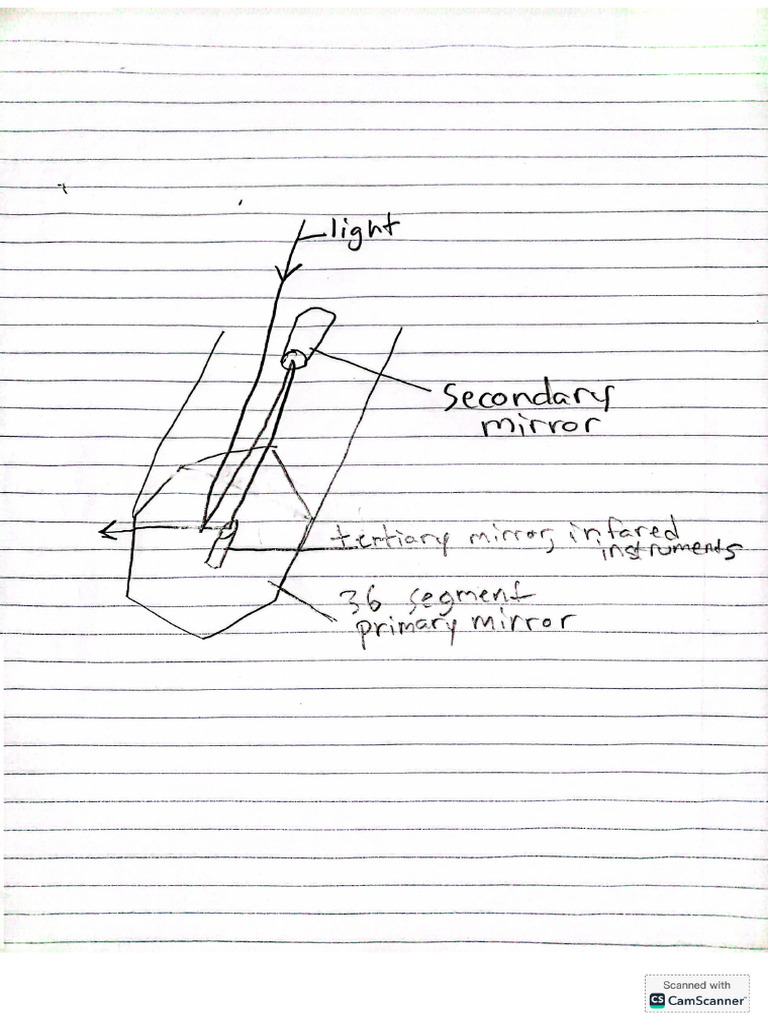 light
Secondary
mirror
tertiary mirror, infared
instruments
36 segment
primary mirror
Scanned with
CS CamScanner